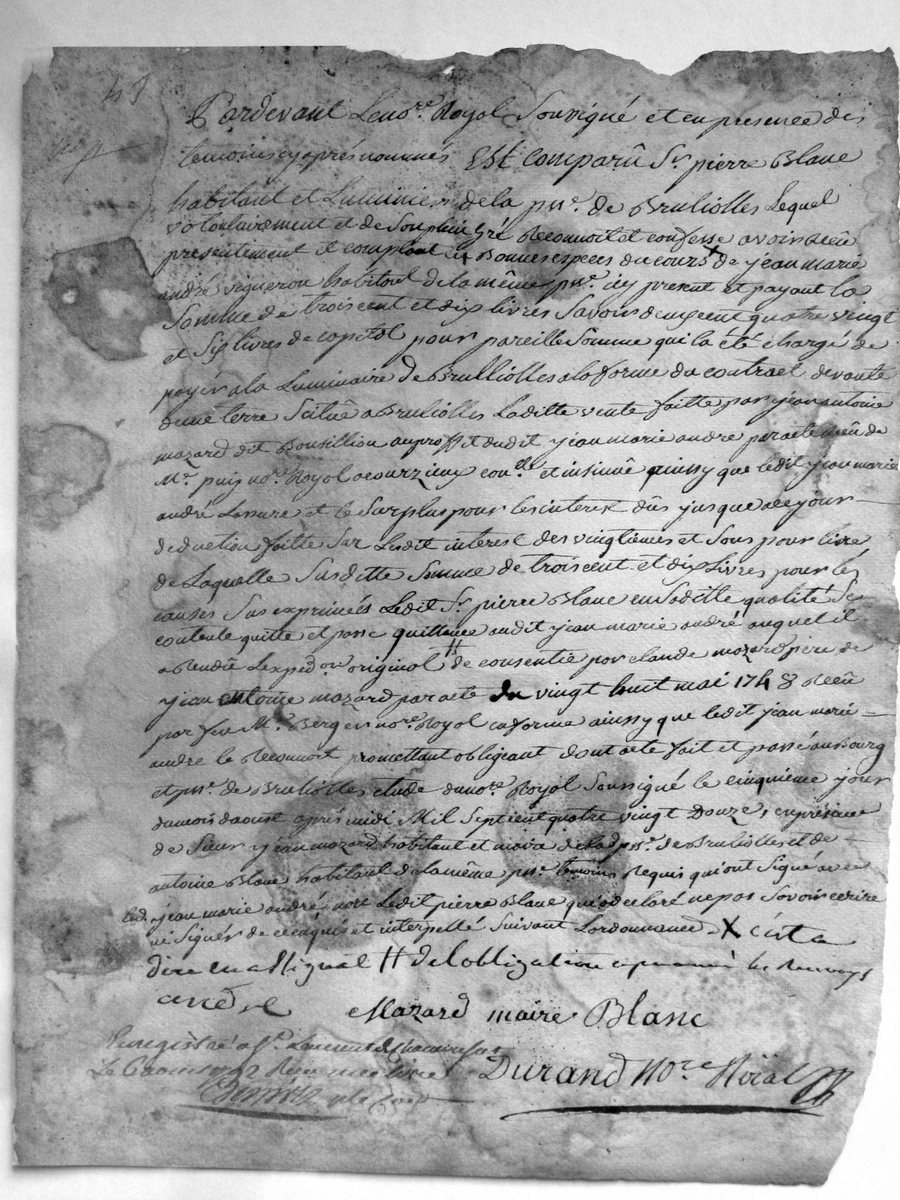 Pardevant Le no.re Royal Soussigné et en presence des
temoins cy aprés nommés Est comparû Sr. pierre Blanc
habitant et Luminier de la psse. de Brulliolles Lequel
volontairement et de Son plein gré Reconnoit et confesse avoir Reçû
presentement et comptant X en Bonnes especes du cours X de jean marie
andré vigneron habitant de la même psse. icy present et payant La
Somme de troiscent et dix livres Savoir deuxcent quatre vingt
et Six livres de capital pour pareille Somme qui la été chargé de
payér a la Luminaire de Brulliolles a la forme du contract de vante
dune terre Scituê a Brulliolles Laditte vente faitte par jean antoine
mazard dit Bonsillion au proffit dudit jean marie andré par acte Reçû de
Me. puis no.re Royal a courzieux con.llé et insinué ainssy que ledit jean marie
andré Lassure et le Surplus pour les interest dûs jusque a ce jour
deduction faitte Sur Lesdit interest des vingtièmes et Sous pour livre
de Laquelle Susditte Somme de troiscent et dix Livres pour les
causes Sus exprimées Ledit Sr. pierre Blanc en Saditte qualité Se
contente quitte et passe quittance audit jean marie andré auquel il
a Rendû Lexped.on original # de consentie par claude mazard pere de
jean antoine mazard par acte du vingt huit mai 1748 Reçû
par feu Me. Berger no.re Royal en forme ainssy que ledit jean marie
andre le Reconnoit promettant obligeant dont acte fait et passé au Bourg
et psse. de Brulliolles etude du no.re Royal Soussigné le cinquième jour
du mois daoust aprés midi Mil Septcent quatre vingt Douze, en présance
de Sieur jean mazard habitant et de la d. psse. de Brulliolles et de
antoine Blanc habitant de la même psse. temoins Requis qui ont Signé avec
led. jean marie andré non Ledit pierre Blanc qui a declaré ne pas Savoir ecrire
ni Signér de ce enquis et interpellé Suivant Lordonnance X cest a
dire en assignat # de lobligation aprouvé les Renvoys
andre Mazard maire Blanc
Enregistré a St. Laurent de Chamousset
Le Reçu une livre
Durand No.re Roïal